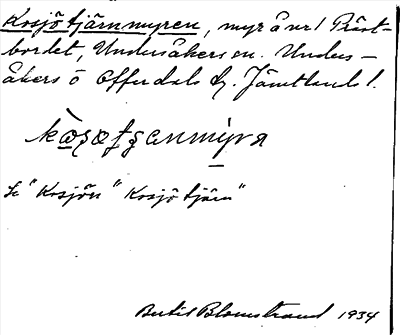 Kosjötjärnmyren, myr å nr 1 Präst-
bordet, Undersåkers sn. Unders-
åkers o Offerdals tg. Jämtlands l.
se "Kosjön" Kosjötjärn"
Bertil Blomstrand 1934